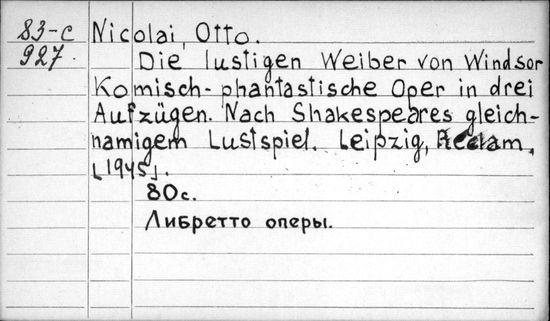 83-с Nicolai, Otto.
927. Die lustigen Weiber von Windsor
Komisch-phantastische Oper in drei
Aufzügen. Nach Shakespeares gleich-
namigem Lustspiel. Leipzig, Reclam,
[1945].
80с.
Либретто оперы.